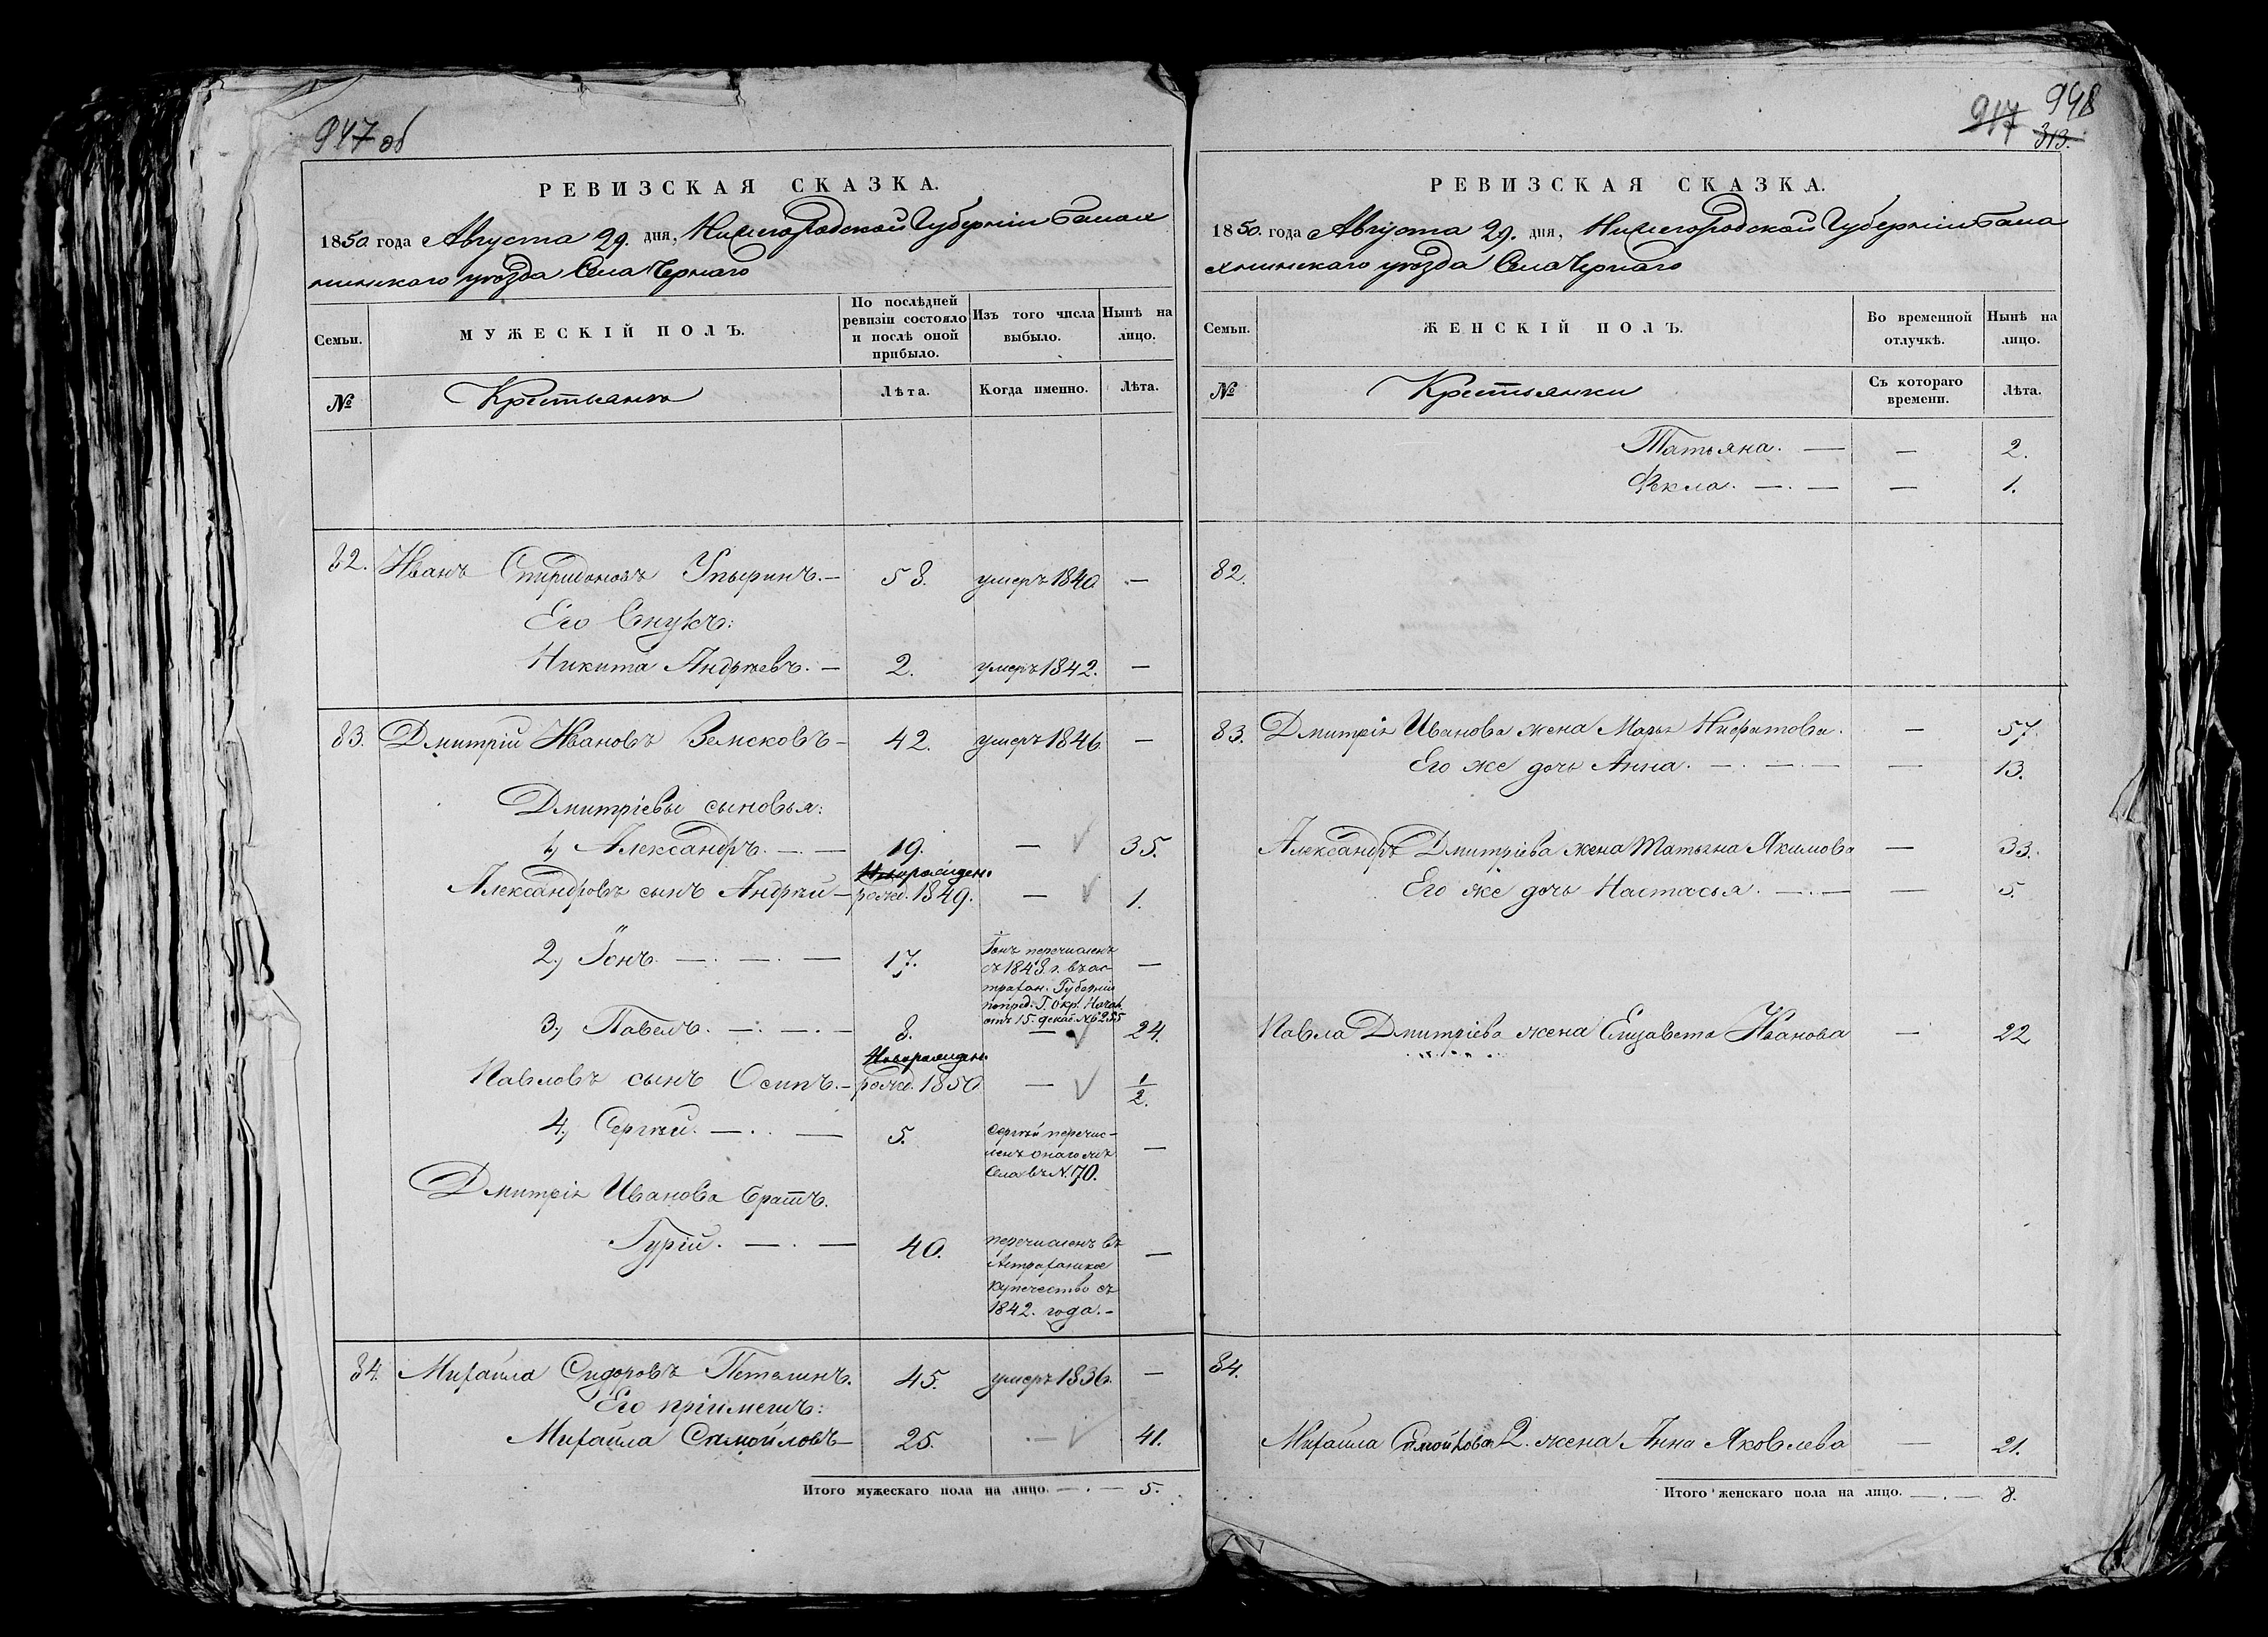 947 об
РЕВИЗСКАЯ СКАЗКА.
1850 года Августа 29. дня, Нижегородской Губерніи Балах
нинскаго уѣзда Села Чернаго
Семьи.
МУЖЕСКІЙ ПОЛЪ.
По послѣдней ревизіи состояло и послѣ оной прибыло.
Изъ того числа выбыло.
Нынѣ на лицо.
№
Крестьянъ
Лѣта.
Когда именно.
Лѣта.
82. Иванъ Спиридоновъ Упыринъ. — 58. умеръ 1840 —
Его Внукъ:
Никита Андрѣевъ. — 2. умеръ 1842. —
83. Дмитрій Ивановъ Земсковъ — 42. умеръ 1846 —
Дмитріевы сыновья:
1, Александръ. — 19. — 35.
Новорожден.
Александровъ сынъ Андрѣй — рожд. 1849. — 1.
2, Іонъ. — . — . — 17. Іонъ перечисленъ —
съ 1848 г. въ ас-
трахан. Губернію
попред: Г. Окр. Начал.
отъ 15. декаб. №6255
3, Павелъ. — . — . — 8. — 24.
Новорожден.
Павловъ сынъ Осипъ. — рожд. 1850 — 1/2.
4, Сергѣй. — . . — 5. Сергѣй перечис- —
ленъ онаго жъ
Села въ N. 70.
Дмитрія Иванова братъ.
Гурій. — . — 40. перечисленъ въ —
Астраханское
купечество съ
1842. года. —
84. Михайла Сидоровъ Петелинъ. 45. умеръ 1836. —
Его пріймешъ:
Михайла Самойловъ — 25. — 41.
Итого мужескаго пола на лицо. — . — 5.
917 948
313.
РЕВИЗСКАЯ СКАЗКА.
1850. года Августа 29. дня, Нижегородской Губерніи Бала
хнинскаго уѣзда Села Чернаго
Семьи.
ЖЕНСКІЙ ПОЛЪ.
Во временной отлучкѣ.
Нынѣ на лицо.
№
Крестьянки
Съ котораго времени.
Лѣта.
Татьяна. — — 2.
Фекла. — . — — 1.
82.
83. Дмитрія Иванова жена Марья Нифатова. — 57.
Его же дочь Анна. — . — . — — 13.
Александръ Дмитріева жена Татьяна Якимова — 33.
Его же дочь Настасья. — . — — 5.
Павла Дмитріева жена Елизавета Иванова — 22
84.
Михайла Самойлова 2. жена Анна Яковлева — 21.
Итого женскаго пола на лицо. — . — 8.